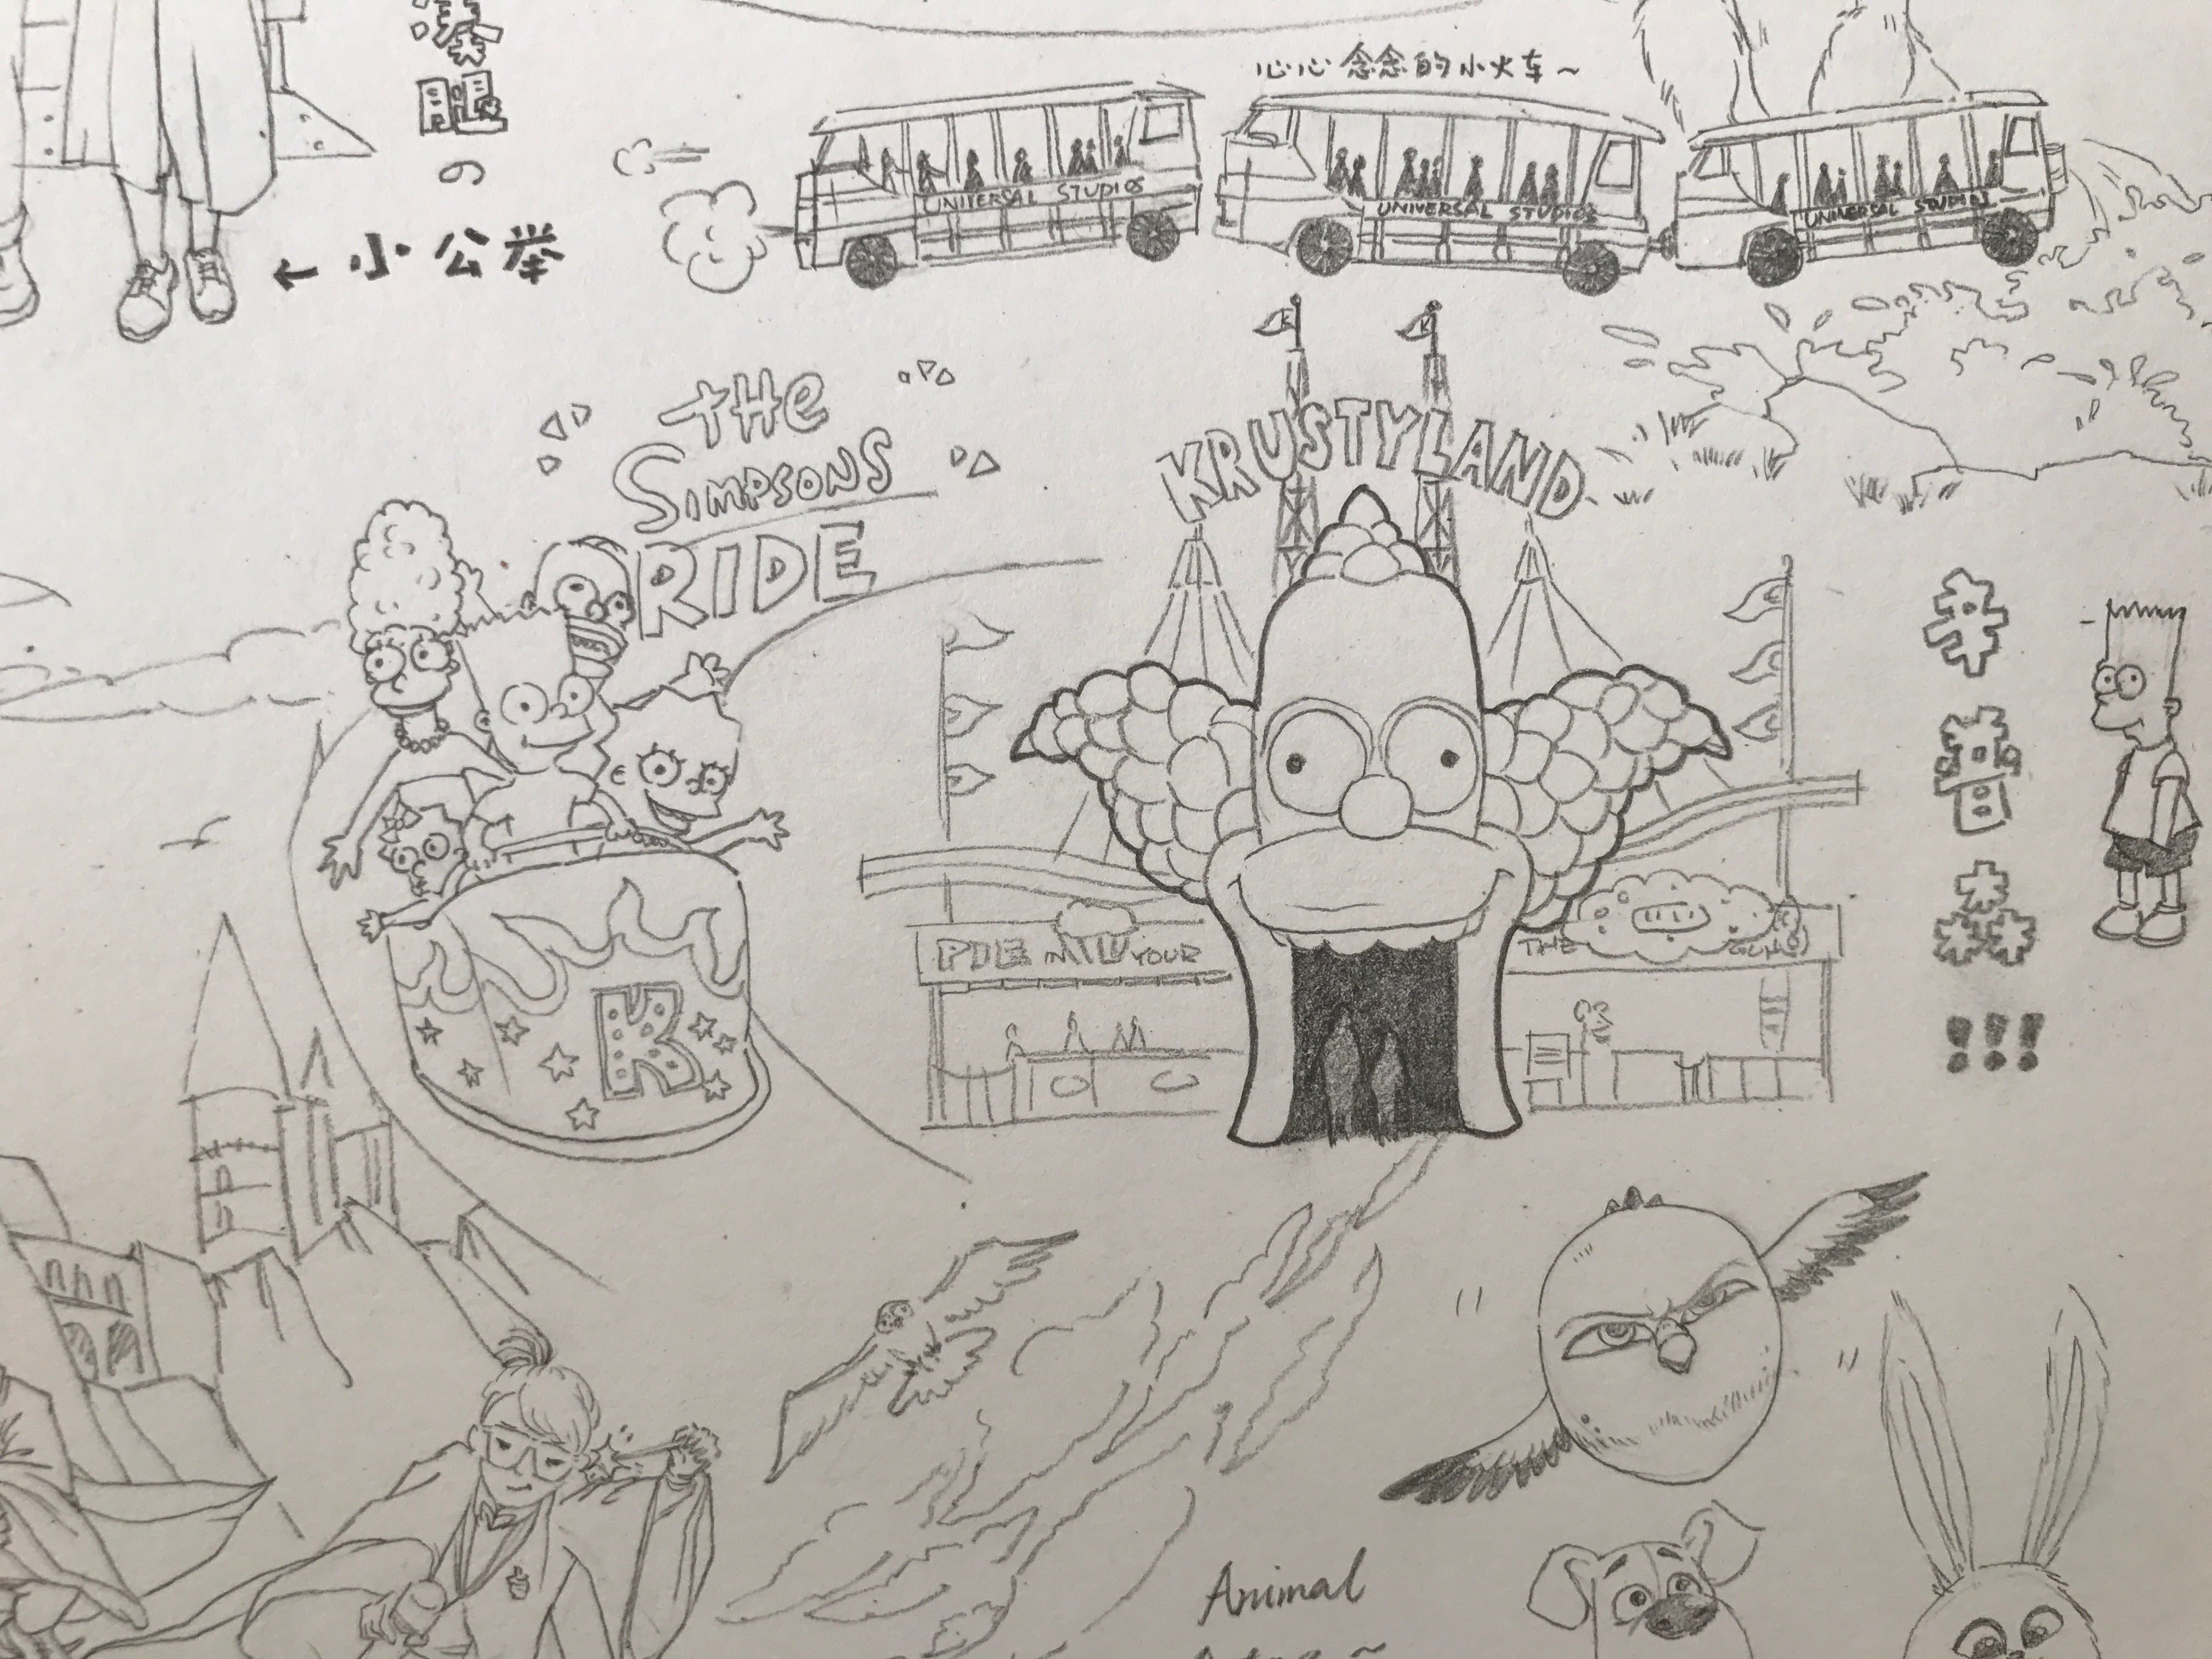 腿
の
←小公举
心心念念的小火车~
UNIVERSAL STUDIOS
UNIVERSAL STUDIOS
UNIVERSAL STUDIOS
K
K
THE
SIMPSONS
RIDE
KRUSTYLAND
辛
普
森
!!!
PIE
YOUR
THE
K
Animal